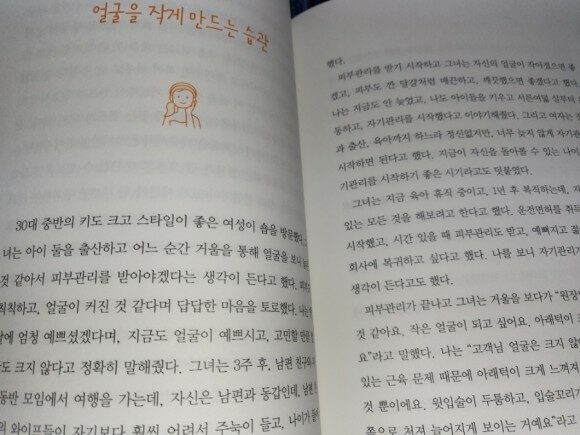 얼굴을 작게 만드는 습관
30대 중반의 키도 크고 스타일이 좋은 여성이 숍을 방문했다.
녀는 아이 둘을 출산하고 어느 순간 거울을 통해 얼굴을 보니
것 같아서 피부관리를 받아야겠다는 생각이 든다고 했다.
칙칙하고, 얼굴이 커진 것 같다며 답답한 마음을 토로했다. 나는
에 엄청 예쁘셨겠다며, 지금도 얼굴이 예쁘시고, 고민할 만큼
도 크지 않다고 정확히 말해줬다. 그녀는 3주 후, 남편 친구
동반 모임에서 여행을 가는데, 자신은 남편과 동갑인데, 남편
의 와이프들이 자기보다 훨씬 어려서 주눅이 들고, 나이가
했다.
피부관리를 받기 시작하고 그녀는 자신의 얼굴이 작아졌으면 좋
겠고, 피부도 깐 달걀처럼 매끈하고, 깨끗했으면 좋겠다고 했다.
나는 지금도 안 늦었고, 나도 아이들을 키우고 서른여덟 살부터
동하고, 자기관리를 시작했다고 이야기해줬다. 그리고 여자는
과 출산, 육아까지 하느라 정신없지만, 너무 늦지 않게 자기관
시작하면 된다고 했다. 지금이 자신을 돌아볼 수 있는 나이
기관리를 시작하기 좋은 시기라고도 덧붙였다.
그녀는 지금 육아 휴직 중이고, 1년 후 복직하는데,
있는 모든 것을 해보려고 한다고 했다. 운전면허를 취득
시작했고, 시간 있을 때 피부관리도 받고, 예뻐지고
회사에 복귀하고 싶다고 했다. 나를 보니 자기관리
생각이 든다고도 했다.
피부관리가 끝나고 그녀는 거울을 보다가 "원장
것 같아요. 작은 얼굴이 되고 싶어요. 아래턱이
요"라고 말했다. 나는 "고객님 얼굴은 크지 않
있는 근육 문제 때문에 아래턱이 크게 느껴져
것 뿐이에요. 윗입술이 두툼하고, 입술꼬리가
쪽으로 처져 늘어지게 보이는 거예요"라고